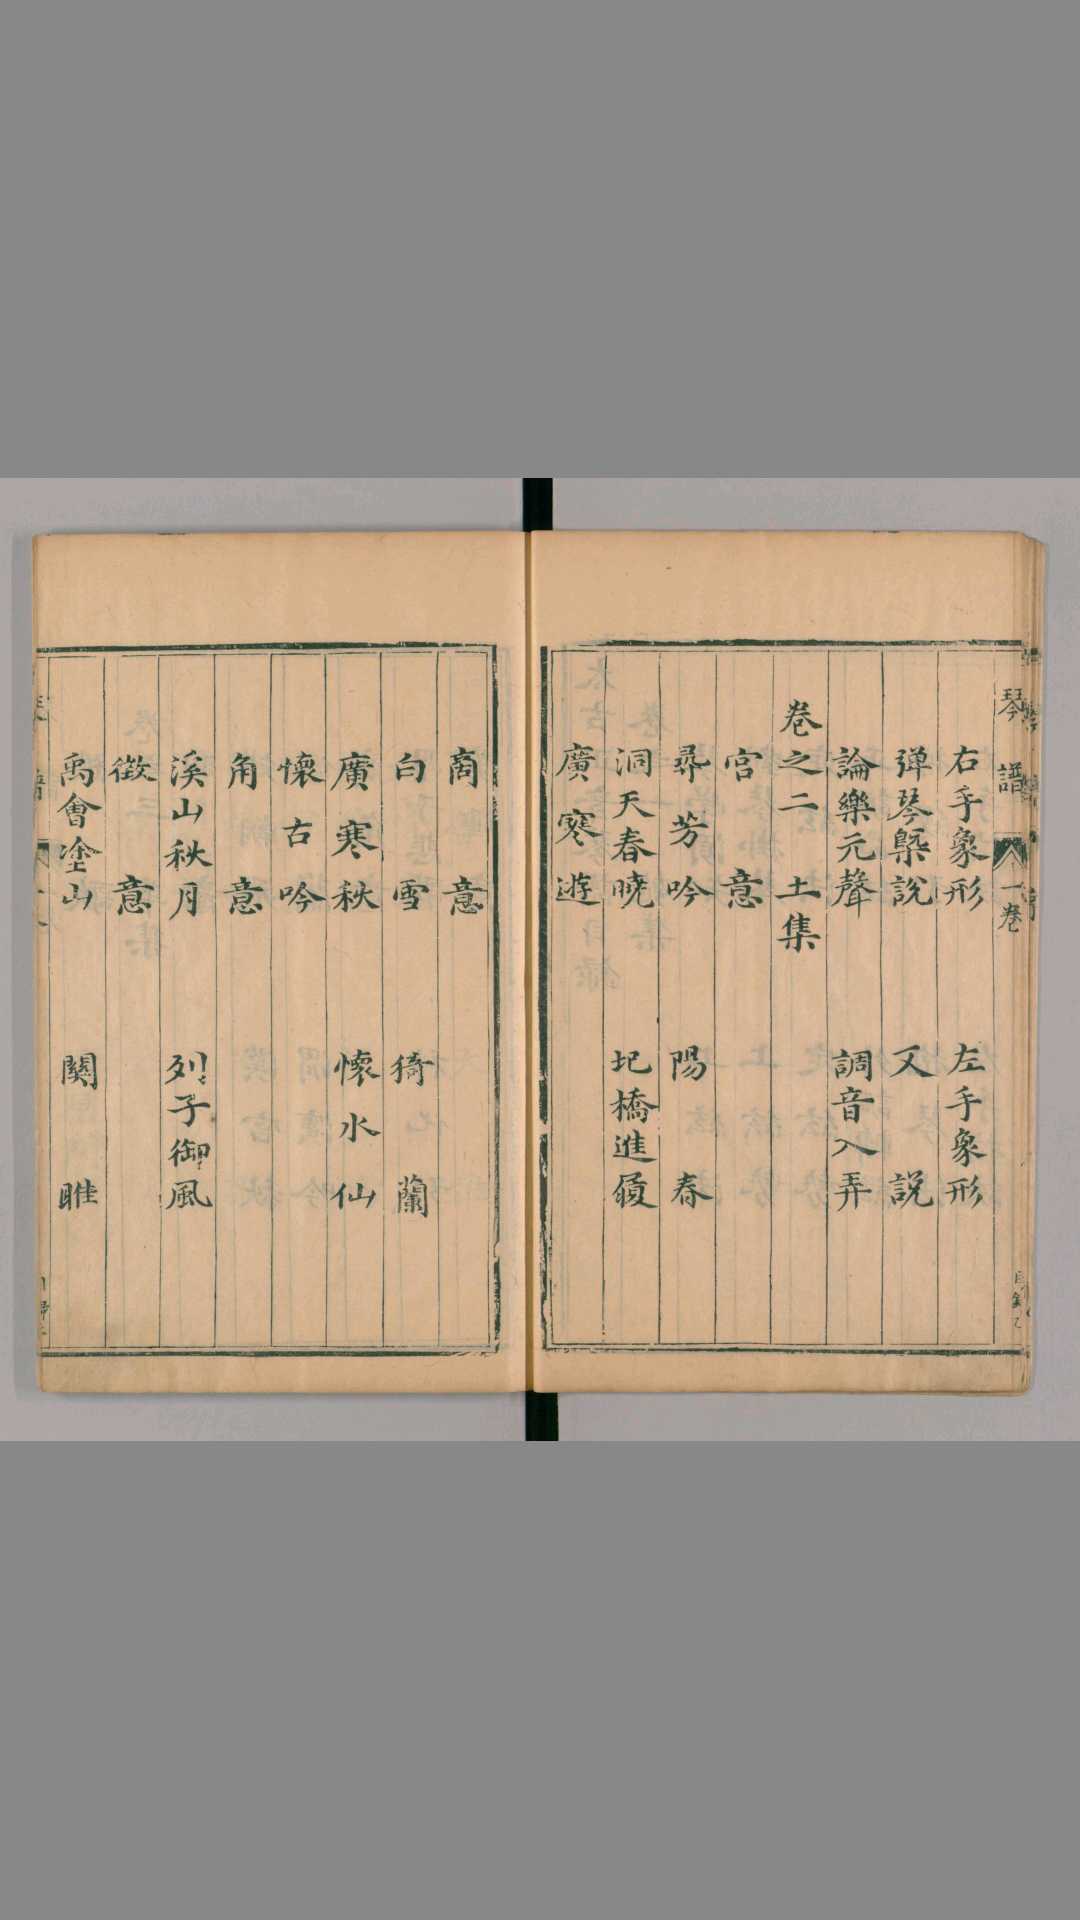 琴譜 一卷
右手象形 左手象形
弹琴槩説 又説
論樂元聲 調音入弄
卷之二 土集
宮意
尋芳吟 陽春
洞天春曉 圯橋進履
廣寒遊
商意
白雪 猗蘭
廣寒秋 懷水仙
懷古吟
角意
溪山秋月 列子御風
徵意
禹會塗山 關雎